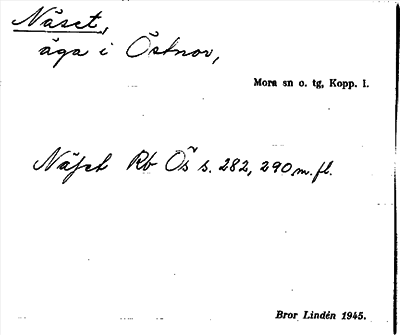 Näset,
äga i Östnor,
Mora sn o. tg, Kopp. l.
Näset Rb Ös s. 282, 290 m. fl.
Bror Lindén 1945.